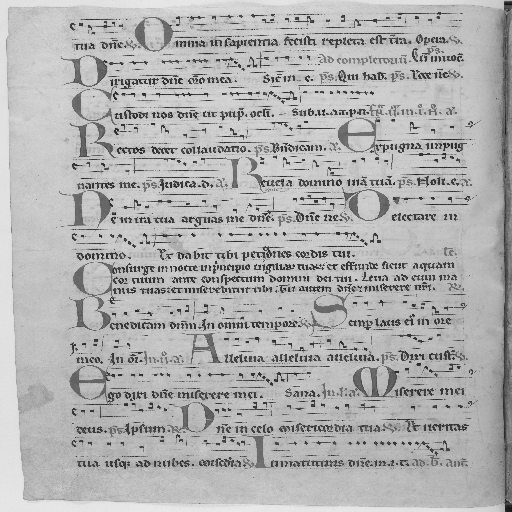 tua dñe. Omnia in sapientia fecisti repleta est t̄ra. Opera.
Ad completoriū. Cū inuoc̄.
Dirigatur dñe or̄o mea. ps. Qui hab̄. ps. Ecce nc̄.
Custodi nos dñe ut pup. oculi.
Rectos decet collaudatio. ps. Bn̄dicam. Expugna inpug
nantes me. ps. Judica. d. Reuela domino uiā tuā. ps. Noli. e.
Ne in ira tua arguas me dñe. ps. Dñe ne. Delectare in
domino. Et dabit tibi petic̄iones cordis tui.
Consurge in nocte in principio uigiliar̄ tuar̄ et effunde sicut aquam
cor tuum ante conspectum domini dei tui. Leua ad eum ma
nus tuas et miserebitur tibi. Tu autem dñe miserere nr̄i.
Benedicam dn̄m. In omni tempore. Semp laus ei' in ore
meo. Alleluia alleluia alleluia. ps. Dixi cust̄.
Ego dixi dñe miserere mei. Sana. Miserere mei
deus. ps. Ipsum. Dñe in celo misericordia tua. Et ueritas
tua usq; ad nubes.